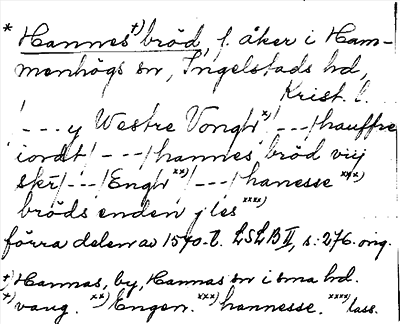 * Hannes⁺⁾ bröd, f. åker i Ham-
menhögs sn, Ingelstads hd,
Krist. l.
/---/ y Westre Vongh ˣ⁾ /---/ hauffre
iordt /---/ hannes bröd viij
skr /---/ Engh ˣˣ⁾ /---/ hanesse ˣˣˣ⁾
bröds enden j les ˣˣˣˣ⁾
förra delen av 1570-t. LSLB II, s. 276. orig.
⁺⁾ Hannas, by, Hannas sn i sma hd.
ˣ⁾ vang. ˣˣ⁾ Engen. ˣˣˣ⁾ hannesse. ˣˣˣˣ⁾ lass.